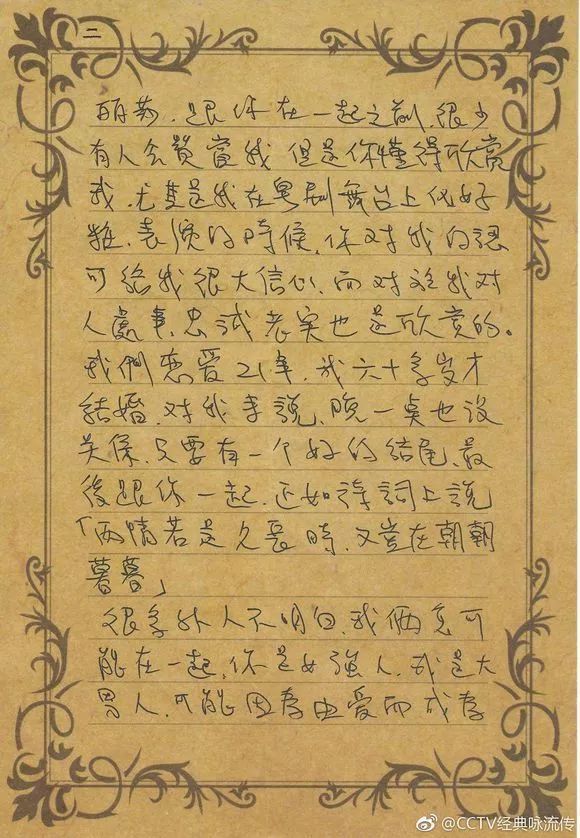 二
丽莎,跟你在一起之前,很少
有人会贊賞我 但是你懂得欣賞
我,尤其是我在粤剧舞台上
表演的時候,你对我的認
可给我很大信心,而对於我对
人處事,忠誠老实也是欣賞的。
我們恋爱21年,我六十多岁才
结婚,对我来說,晚一点也没
关係,只要有一个好的结尾,最
後跟你一起,正如诗詞上說
「两情若是久長時,又豈在朝朝
暮暮」
很多外人不明白,我俩竟可
能在一起,你是女強人,我是大
男人,可能因为由爱而成为
@CCTV经典咏流传